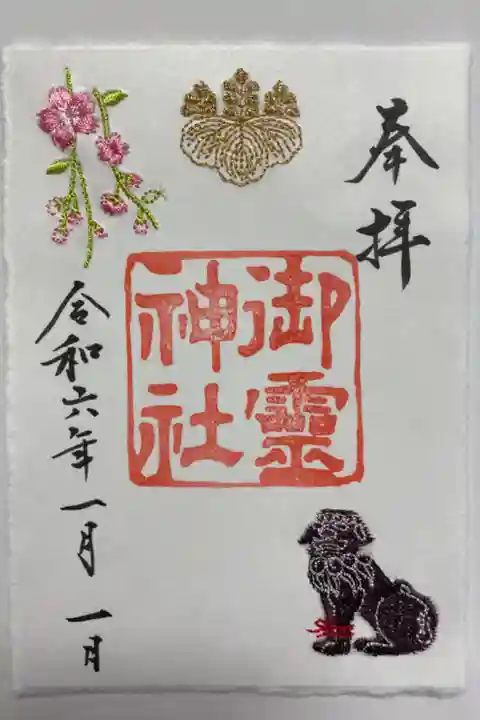 奉拝
御靈
神社
令和六年一月一日